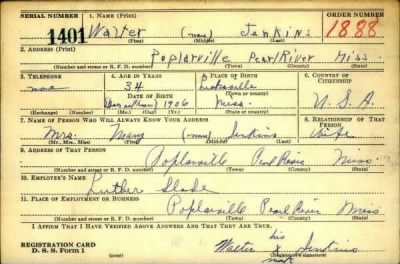 SERIAL NUMBER 1. NAME (Print) ORDER NUMBER
1401 Walter (none) Jenkins 1888
(First) (Middle) (Last)
2. ADDRESS (Print)
Poplarville Pearl River Miss.
(Number and street or R. F. D. number) (Town) (County) (State)
3. TELEPHONE 4. AGE IN YEARS 5. PLACE OF BIRTH 6. COUNTRY OF CITIZENSHIP
none 34
DATE OF BIRTH (Town or county)
1906 Miss. U. S. A.
(Mo.) (Day) (Yr.) (State or country)
7. NAME OF PERSON WHO WILL ALWAYS KNOW YOUR ADDRESS 8. RELATIONSHIP OF THAT PERSON
Mrs. Mary (none) Jenkins Wife
(Mr., Mrs., Miss) (First) (Middle) (Last)
9. ADDRESS OF THAT PERSON
Poplarville Pearl River Miss
(Number and street or R. F. D. number) (Town) (County) (State)
10. EMPLOYER'S NAME
Luther Slade
11. PLACE OF EMPLOYMENT OR BUSINESS
Poplarville Pearl River Miss
(Number and street or R. F. D. number) (Town) (County) (State)
I AFFIRM THAT I HAVE VERIFIED ABOVE ANSWERS AND THAT THEY ARE TRUE.
REGISTRATION CARD
D. S. S. Form 1 (over)
his
Walter x Jenkins
mark
(Registrant's signature)